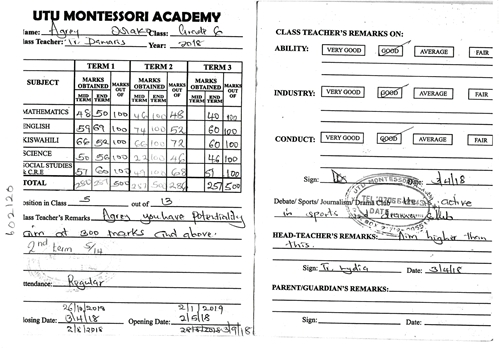 UTU MONTESSORI ACADEMY
Name: Agrey Osiako Class: Grade 6
Class Teacher: Tr. Damaris Year: 2018
TERM 1 TERM 2 TERM 3
SUBJECT MARKS OBTAINED MARKS OUT OF MARKS OBTAINED MARKS OUT OF MARKS OBTAINED MARKS OUT OF
MID TERM END TERM MID TERM END TERM MID TERM END TERM
MATHEMATICS 48 50 100 46 100 48 40 100
ENGLISH 59 69 100 74 100 52 60 100
KISWAHILI 66 52 100 66 100 72 60 100
SCIENCE 50 56 100 22 100 46 46 100
SOCIAL STUDIES & C.R.E 57 60 100 49 100 68 51 100
TOTAL 500 257 500 286 257 500
Position in Class 5 out of 13
Class Teacher's Remarks Agrey you have potentiality
aim at 300 marks and above.
2nd term 5/14
Attendance: Regular
26/10/2018 2/1/2019
Closing Date: 3/4/18 Opening Date: 2/5/18
2/8/2018 3/9/18
602120
CLASS TEACHER'S REMARKS ON:
ABILITY: VERY GOOD GOOD AVERAGE FAIR
INDUSTRY: VERY GOOD GOOD AVERAGE FAIR
CONDUCT: VERY GOOD GOOD AVERAGE FAIR
Sign: Date: 3/4/18
UTU MONTESSORI
TEL:
DATE
Debate/ Sports/ Journalism/ Drama Club active
in sports
HEAD-TEACHER'S REMARKS: Aim higher than
this.
Sign: Tr. Lydia Date: 3/4/18
PARENT/GUARDIAN'S REMARKS:
Sign: Date: